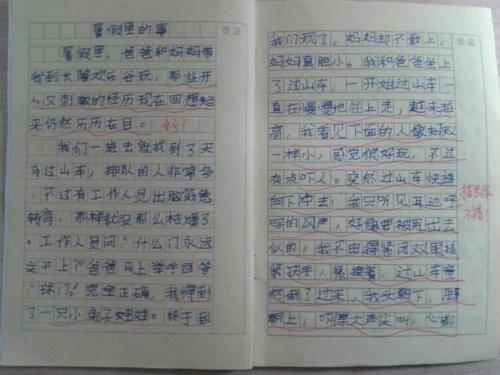 暑假里的事
暑假里，爸爸和妈妈带
我到大 欢乐谷玩，那些开
心又刺激的经历现在回想起
来仍然历历在目。好！
我们一进去就找到了天
马过山车，排队的人非常多
，不过有工作人员出脑筋急
转弯，那样就没那么枯燥了
。工作人员问“什么门永远
关不上？”爸爸马上举手回答
“球门。”完全正确，我得到
了一只小兔子娃娃。终于到
修正
我们玩了，妈妈却不敢上，
妈妈真胆小。我和爸爸坐上
了过山车，一开始过山车一
直在慢慢地往上走，越来越
高，我看见下面的人像蚂蚁
一样小，感觉很好玩，不过
有点吓人。突然过山车快速
向下冲去，我只听见耳边呼
呼的风声，好像要被甩出去
似的，我不由得紧闭双眼抓
紧扶手，紧接着，过山车竟
然倒了过来，我头朝下，
朝上，吓得大声尖叫，心都
修正
不错！